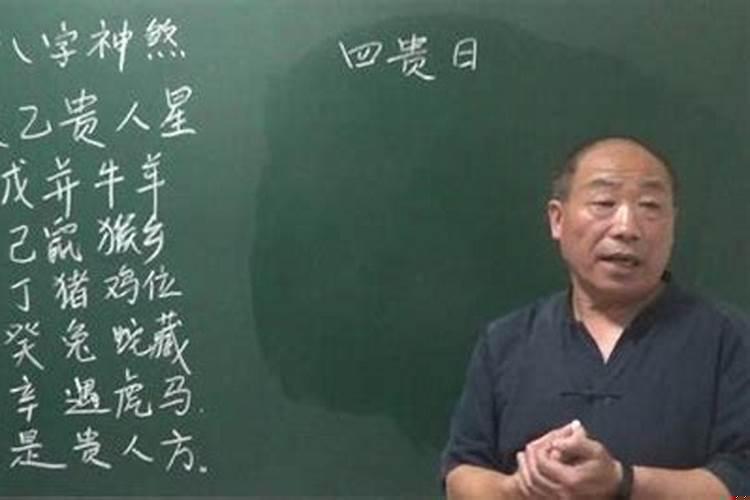 八字神煞
乙贵人星
戊并牛羊
己鼠猴乡
丁猪鸡位
癸兔蛇藏
辛遇虎马.
是贵人方。
四贵日